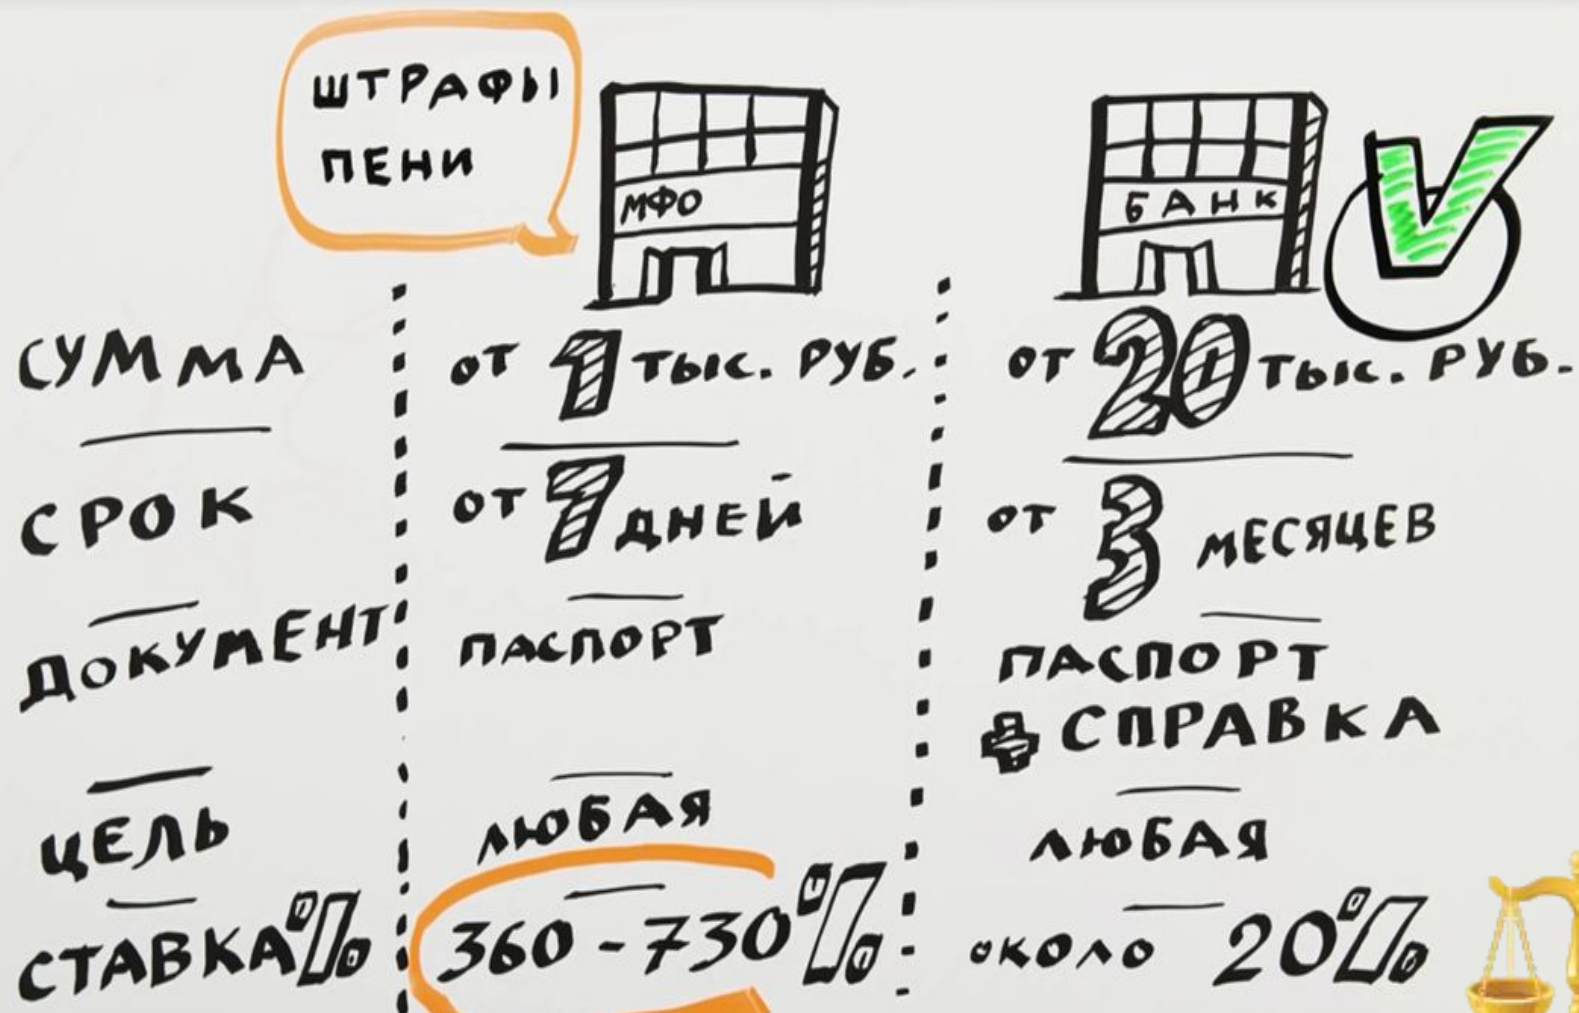 ШТРАФЫ
ПЕНИ
МФО
БАНК
СУММА
от 1 тыс. РУБ.
от 20 тыс. РУБ.
СРОК
от 7 ДНЕЙ
от 3 МЕСЯЦЕВ
ДОКУМЕНТ
ПАСПОРТ
ПАСПОРТ
+ СПРАВКА
ЦЕЛЬ
ЛЮБАЯ
ЛЮБАЯ
СТАВКА %
360 - 730 %
около 20 %